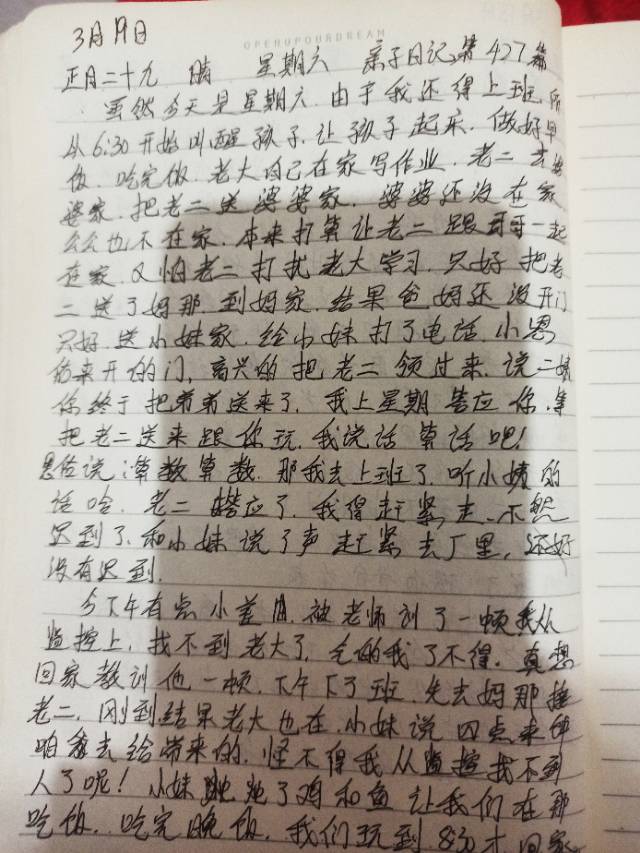 3月19日
OPENUPOURDREAM
正月二十九 晴 星期六 亲子日记第427篇
虽然今天是星期六.由于我还得上班所
从6:30开始叫醒孩子.让孩子起来.做好早
饭.吃完饭.老大自己在家写作业.老二去婆
婆家.把老二送婆婆家.婆婆还没在家
公公也不在家.本来打算让老二跟哥哥一起
在家.又怕老二打扰老大学习.只好把老
二送了妈那.到妈家.结果爸妈还没开门
只好送小妹家.给小妹打了电话.小恩
佑来开的门,高兴的把老二领过来.说二姨
你终于把弟弟送来了.我上星期答应你.等
把老二送来跟你玩.我说话算话吧!
恩佑说:算数算数.那我去上班了.听小姨的
话哈.老二答应了.我得赶紧走.不然
迟到了.和小妹说了声赶紧去厂里,还好
没有迟到.
今下午有点小差.被老师训了一顿我从
监控上,找不到老大了,气的我了不得.真想
回家教训他一顿.下午下了班.先去妈那接
老二.刚到结果老大也在.小妹说四点来钟
咱爸去给带来的.怪不得我从监控找不到
人了呢!小妹炖了鸡和鱼让我们在那
吃饭.吃完晚饭.我们玩到8:30才回家